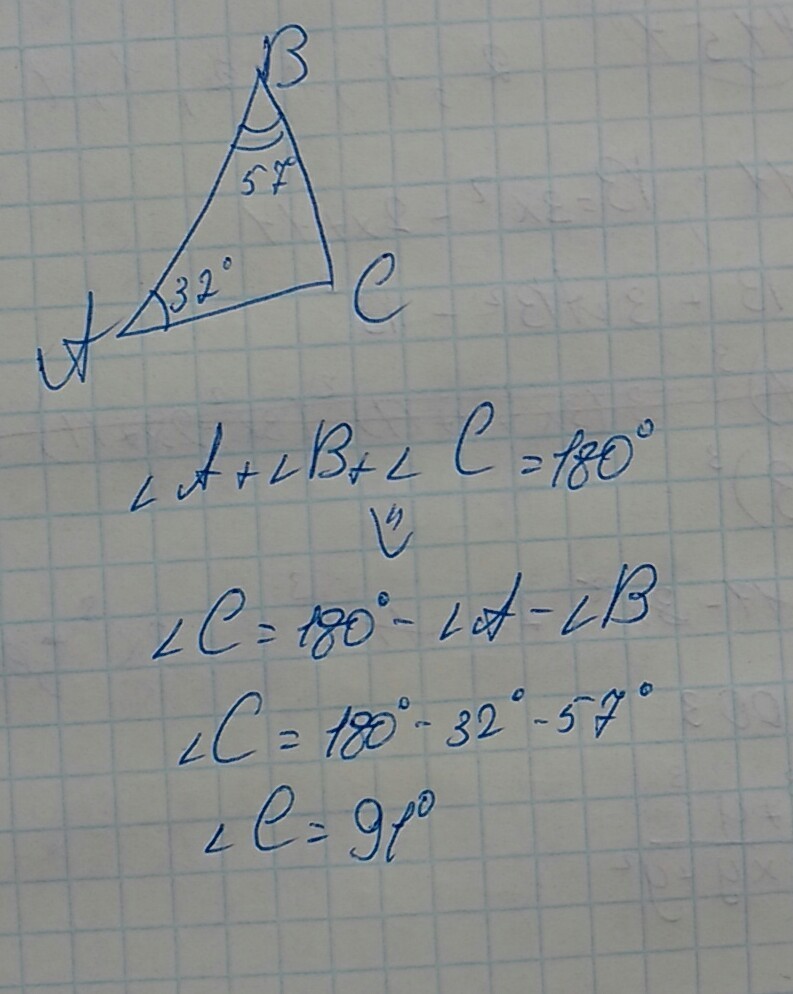 B
57°
32°
C
A
∠A+∠B+∠C=180°
⇓
∠C=180°-∠A-∠B
∠C=180°-32°-57°
∠C=91°